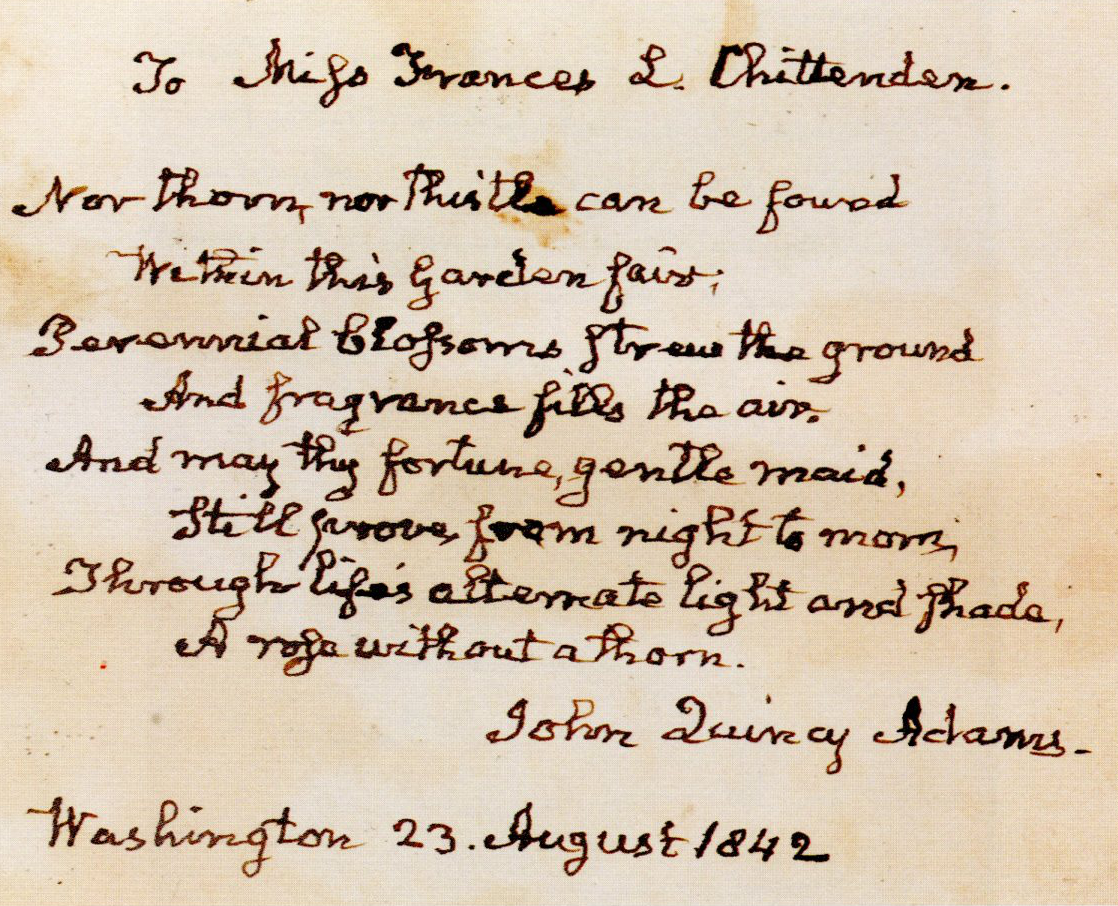 To Miſs Frances L. Chittenden.
Nor thorn, nor thistle can be found
Within this Garden fair;
Perennial bloſsoms ſtrew the ground
And fragrance fills the air.
And may thy fortune, gentle maid,
Still prove, from night to morn,
Through life's alternate light and ſhade,
A roſe without a thorn.
John Quincy Adams.
Washington 23. August 1842